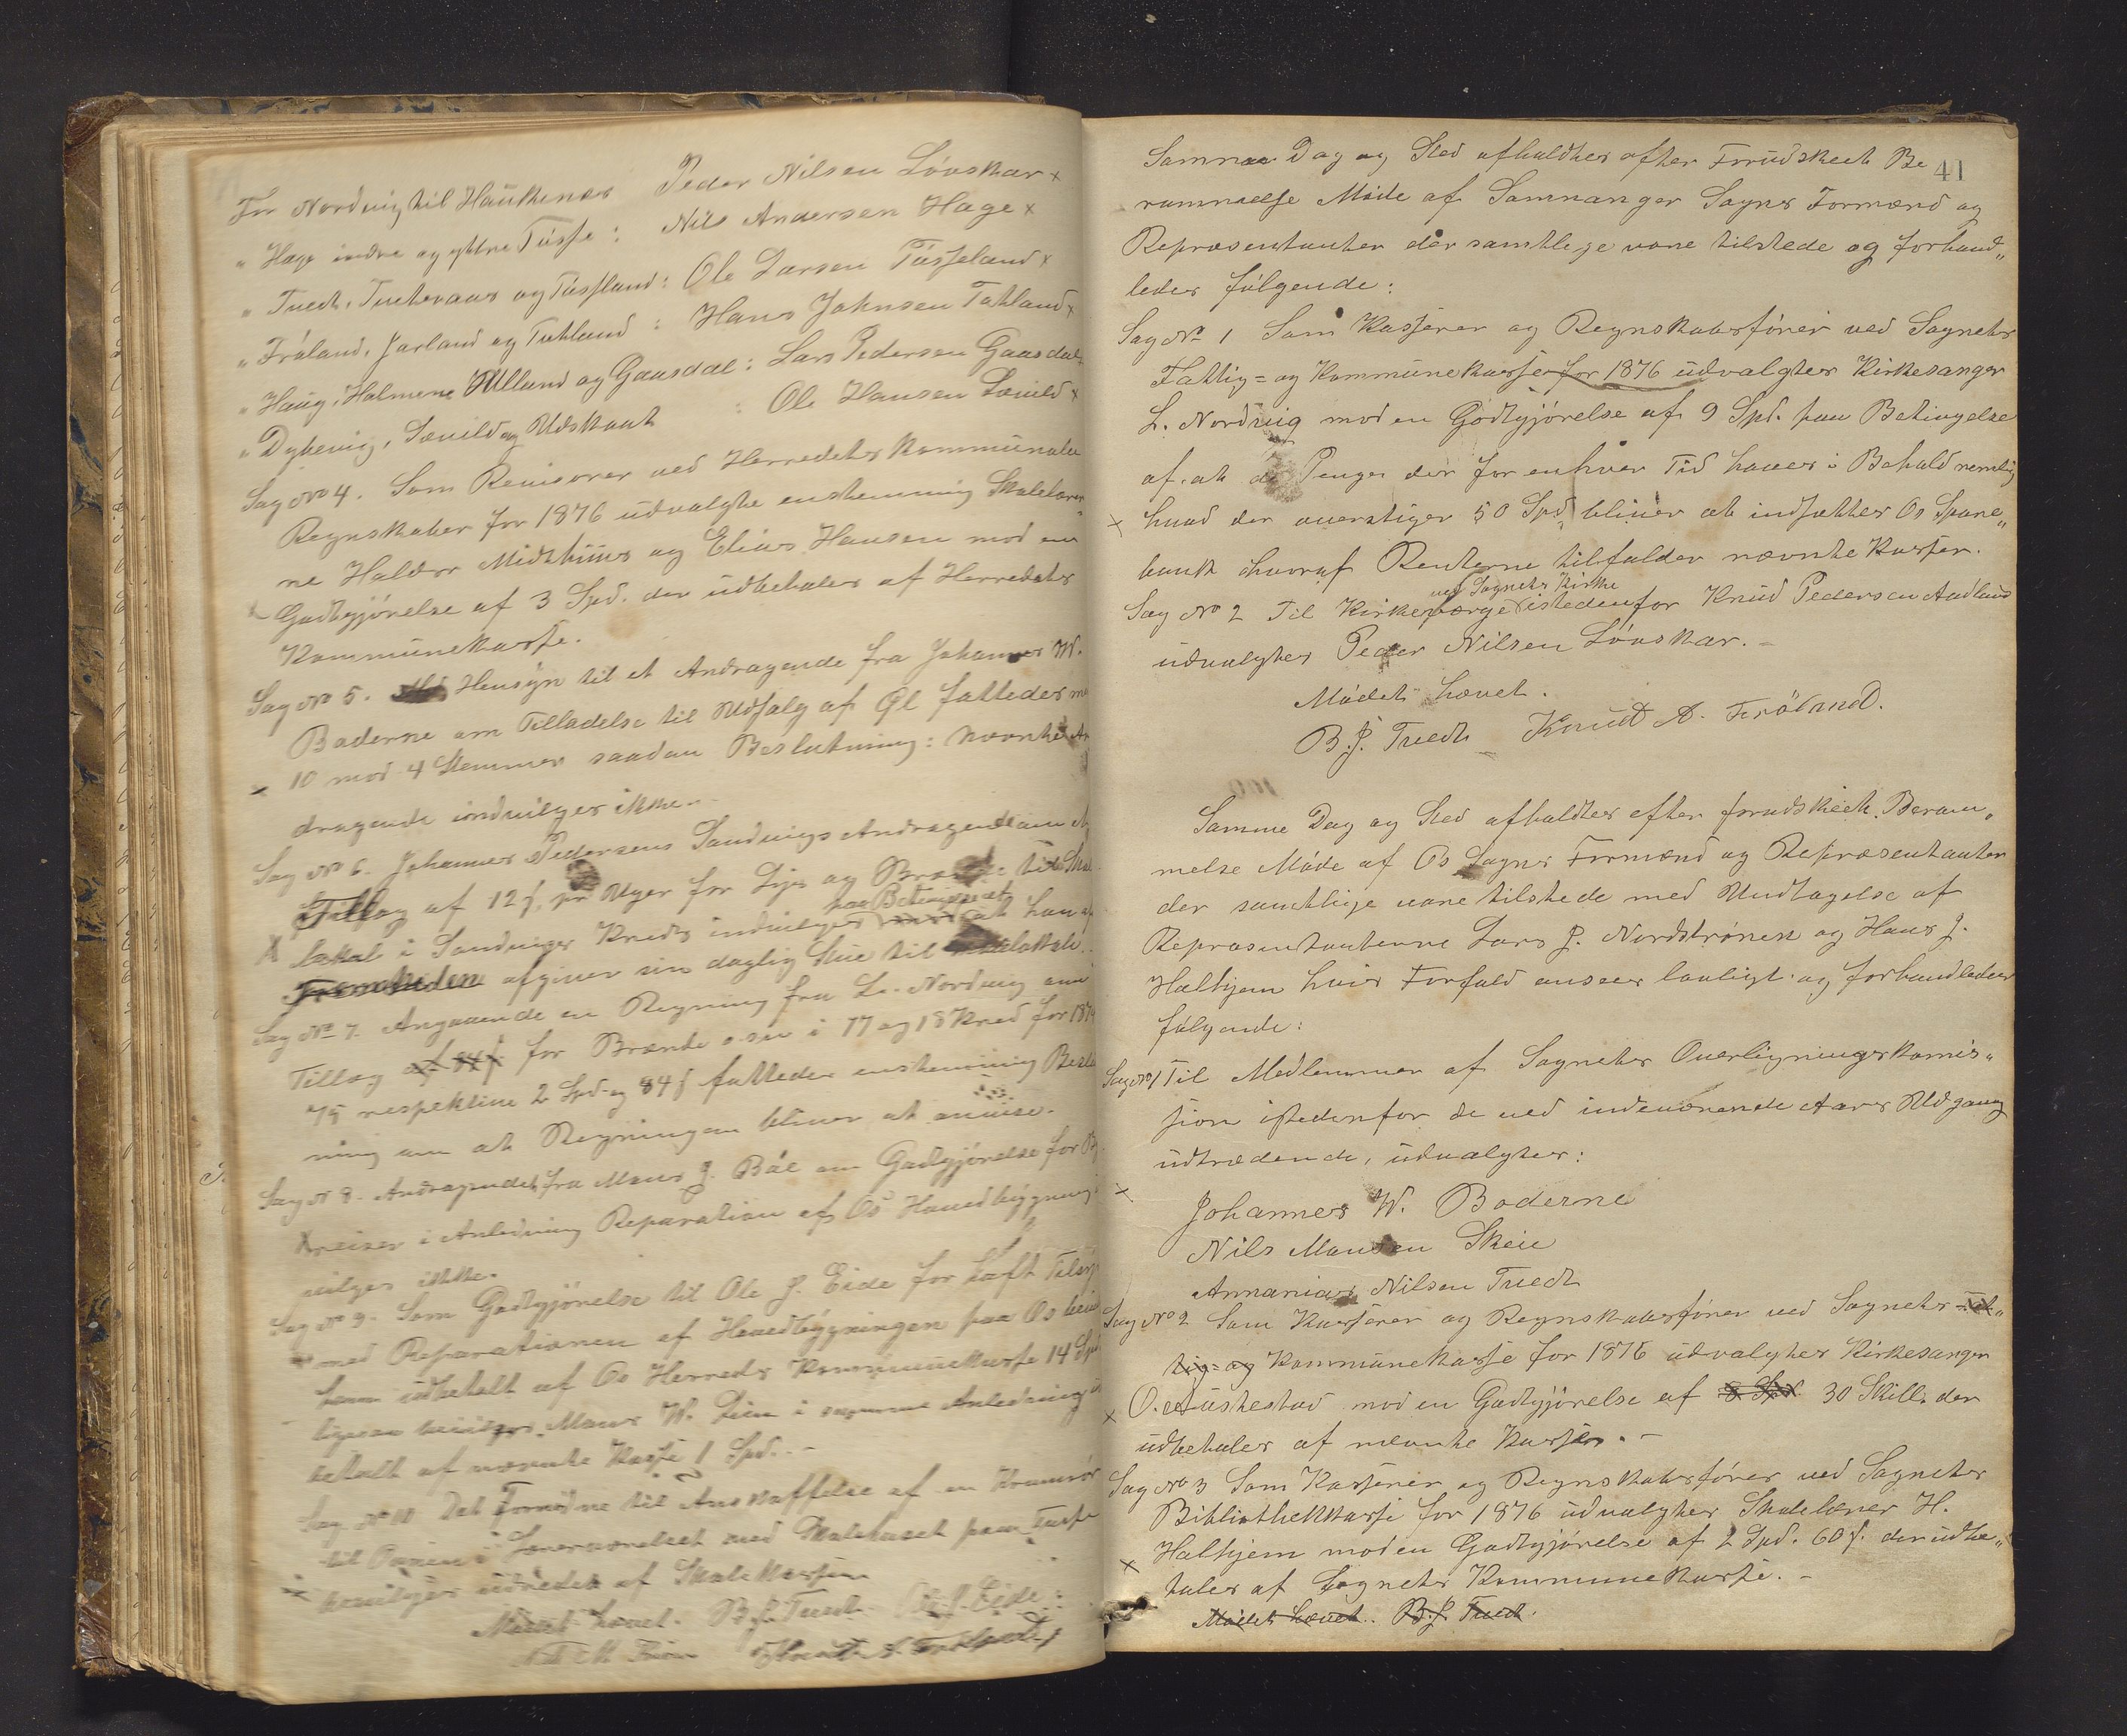 For Nordvig til Haukenæs Peder Nilsen Løvskar x
" Hage indre og yttre Tüsse : Nils Andersen Hage x
" Tvedt, Tveteraas og Tüssland : Ole Larsen Tüsseland x
" Frøland, Jarland og Totland : Hans Johnsen Totland x
" Haug, Holmene Ulland og Gaasdal : Lars Pedersen Gaasdal
" Dyhevig, Sævild og Udskaat : Ole Hansen Sævild x
Sag No 4. Som Revisorer ved Herredets kommunale
Regnskaber for 1876 udvalgte enstemmig Skolelærer
ne Haldor Midthüus og Elias Hansen mod en
Godtgjørelse af 3 Spd. der üdbetales af Herredets
Kommünekasse.
Sag No 5. Hensyn til et Andragende fra Johannes W.
Boderne om Tilladelse til Udsalg af Øl fattedes
10 mod 4 Stemmer saadan Beslutning: Nævnte An
dragende indvilges ikke.
Sag No 6. Johannes Pedersens Sandvigs Andragende om et
Tillæg af 12 ſ. pr Uger for Lys og til
lokal i Sandviger Kreds indvilges paa Betingelse at han
afgiver sin daglig Stue til
Sag No 7. Angaaende en Regning fra L. Nordvig om
Tillæg af 84 ſ for Brænde o.s.v. i 17 og 18 Kred for 1874
75 respektive 2 Spd. og 84 ſ fattedes enstemmig Beslut
ning om at Regningen bliver at anvise.
Sag N 8. Andragendet fra Mons J. Bøe om Godtgjørelse for
reiser i Anledning Reparation af Os Hovedbygning
vilges ikke.
Sag No 9. Som Godtgjørelse til Ole J. Eide for havt Tilsyn
med Reparationen af Hovedbygningen paa Os
ham udbetalt af Os Herreds Kommünekasse 14 Spd
ligesaa bevilges Mons W. Lien i samme Anledning
betalt af nævnte Kasse 1 Spd. -
Sag No 10 Det Fornødne til Anskaffelse af en
til i Lærerværelset ved Skolehuset paa
bevilges udredet af Skolekassen
Mødet hævet. B.J. Tvedt O. J. Eide
Knut A. Frøland
41
Samme Dag og Sted afholdtes efter Forudskeet Be
rammelse Møde af Samnanger Sogns Formænd og
Repræsentanter der samtlige vare tilstede og forhand„
ledes følgende:
Sag No 1 Som Kasserer og Regnskabsfører ved Sognets
Fattig= og Kommünekasse for 1876 üdvalgtes Kirkesanger
L. Nordvig mod en Godtgjørelse af 9 Spd. paa Betingelse
af, at de Penge der for enhver Tid haves i Behold nemlig
x hvad der overstiger 50 Spd, bliver at indsættes Os Spare„
bank hvoraf Renterne tilfalder nævnte Kasser.
ved Sognets Kirke
Sag No 2 Til Kirkeværge istedenfor Knüd Pedersen Aadland
üdvalgtes Peder Nilsen Løvskar. -
Mødet hævet.
B. J. Tvedt Knud A. Frøland.
Samme Dag og Sted afholdtes efter forudskeet Beram„
melse Møde af Os Sogns Formænd og Repræsentanter
der samtlige vare tilstede med Undtagelse af
Repræsentanterne Lars J. Nordstrønen og Hans J.
Halhjem hvis Forfald ansees lovligt og forhandledes
følgende:
Sag No 1 Til Medlemmer af Sognets Overligningskomis„
sion istedenfor de ved indeværende Aars Udgang
üdtrædende, üdvalgtes:
x
Johannes W. Boderne
Nils Monsen Skeie
Annanias Nilsen Tvedt
Sag No 2 Som Kasserer og Regnskabsfører ved Sognets Fat„
tig= og Kommünekasse for 1876 üdvalgtes Kirkesanger
x O. Aüstestad mod en Godtgjørelse af 8 Spd. 30 Skill. der
üdbetales af nævnte Kasser. -
Sag No 3 Som Kasserer og Regnskabsfører ved Sognets
Bibliothekkasse for 1876 üdvalgtes Skolelærer H.
x Halhjem mod en Godtgjørelse af 2 Spd. 60 ſ. der üdbe„
tales af Sognets Kommunekasse. -
Mødet hævet. B. J. Tvedt.